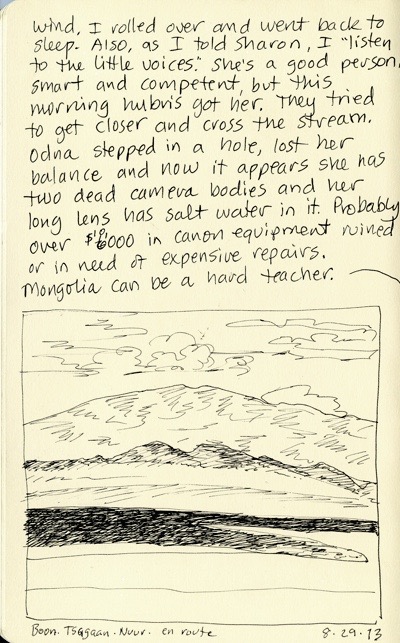 wind, I rolled over and went back to
sleep. Also, as I told Sharon, I "listen
to the little voices." She's a good person,
smart and competent, but this
morning hubris got her. They tried
to get closer and cross the stream.
Odna stepped in a hole, lost her
balance and now it appears she has
two dead camera bodies and her
long lens has salt water in it. Probably
over in canon equipment ruined
or in need of expensive repairs.
Mongolia can be a hard teacher.
Boon. Tsagaan. Nuur. en route
8.29.13